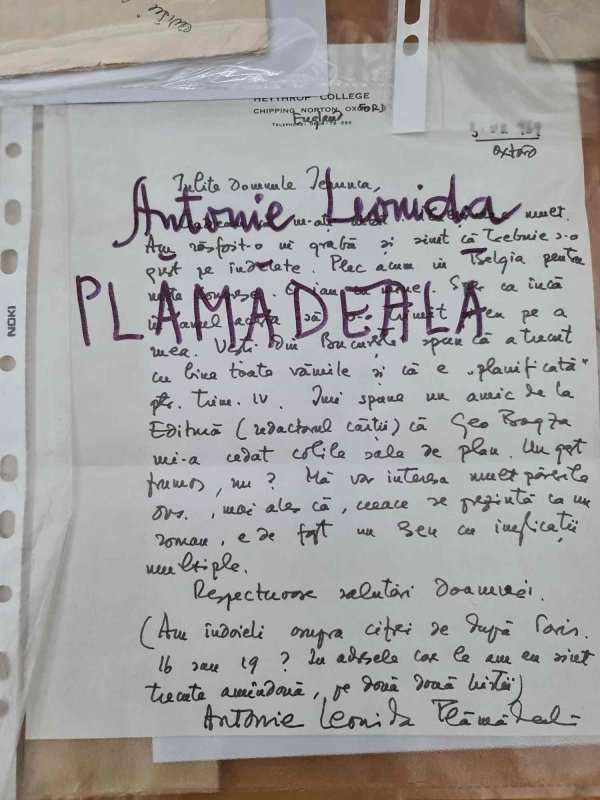 HEYTHROP COLLEGE
CHIPPING NORTON, OXFORD
England
TELEPHONE:
Oxford
Iubite Domnule Ierunca,
Antonie Leonida
mult.
Am răsfoit-o în grabă și sînt că trebuie s-o
gust pe îndelete. Plec acum în Belgia pentru
PLĂMĂDEALĂ
că încă
pe a
mea. Vești din București spun că a trecut
cu bine toate vămile și că e „planificată"
ptr. trim. IV. Îmi spune un amic de la
Editură (redactorul cărții) că Geo Bogza
mi-a cedat colile sale de plan. Un gest
frumos, nu? Mă vor interesa mult părerile
dvs., mai ales că, ceeace se prezintă ca un
roman, e de fapt un eseu cu implicații
multiple.
Respectuoase salutări Doamnei.
(Am îndoieli asupra cifrei de după Paris.
16 sau 19? În adresele care le am eu sînt
trecute amîndouă, pe două două hîrtii)
Antonie Leonida Plămădeală
NOKI